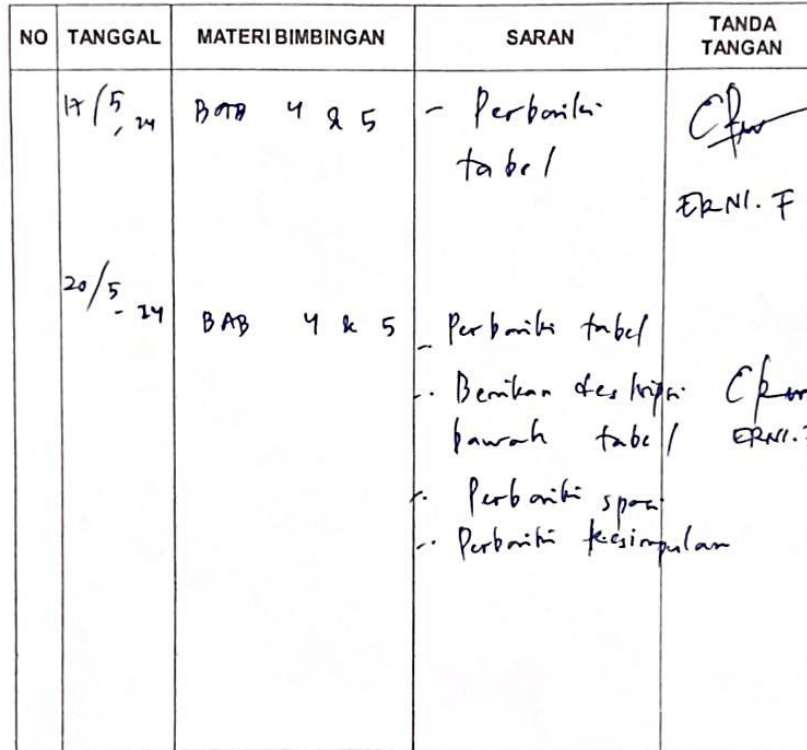 NO TANGGAL MATERI BIMBINGAN SARAN TANDA TANGAN
17/5-24 BAB 4 & 5 - Perbaiki
tabel
ERNI. F
20/5-24 BAB 4 & 5 - Perbaiki tabel
- Berikan deskripsi
bawah tabel ERNI. F
- Perbaiki spasi
- Perbaiki kesimpulan